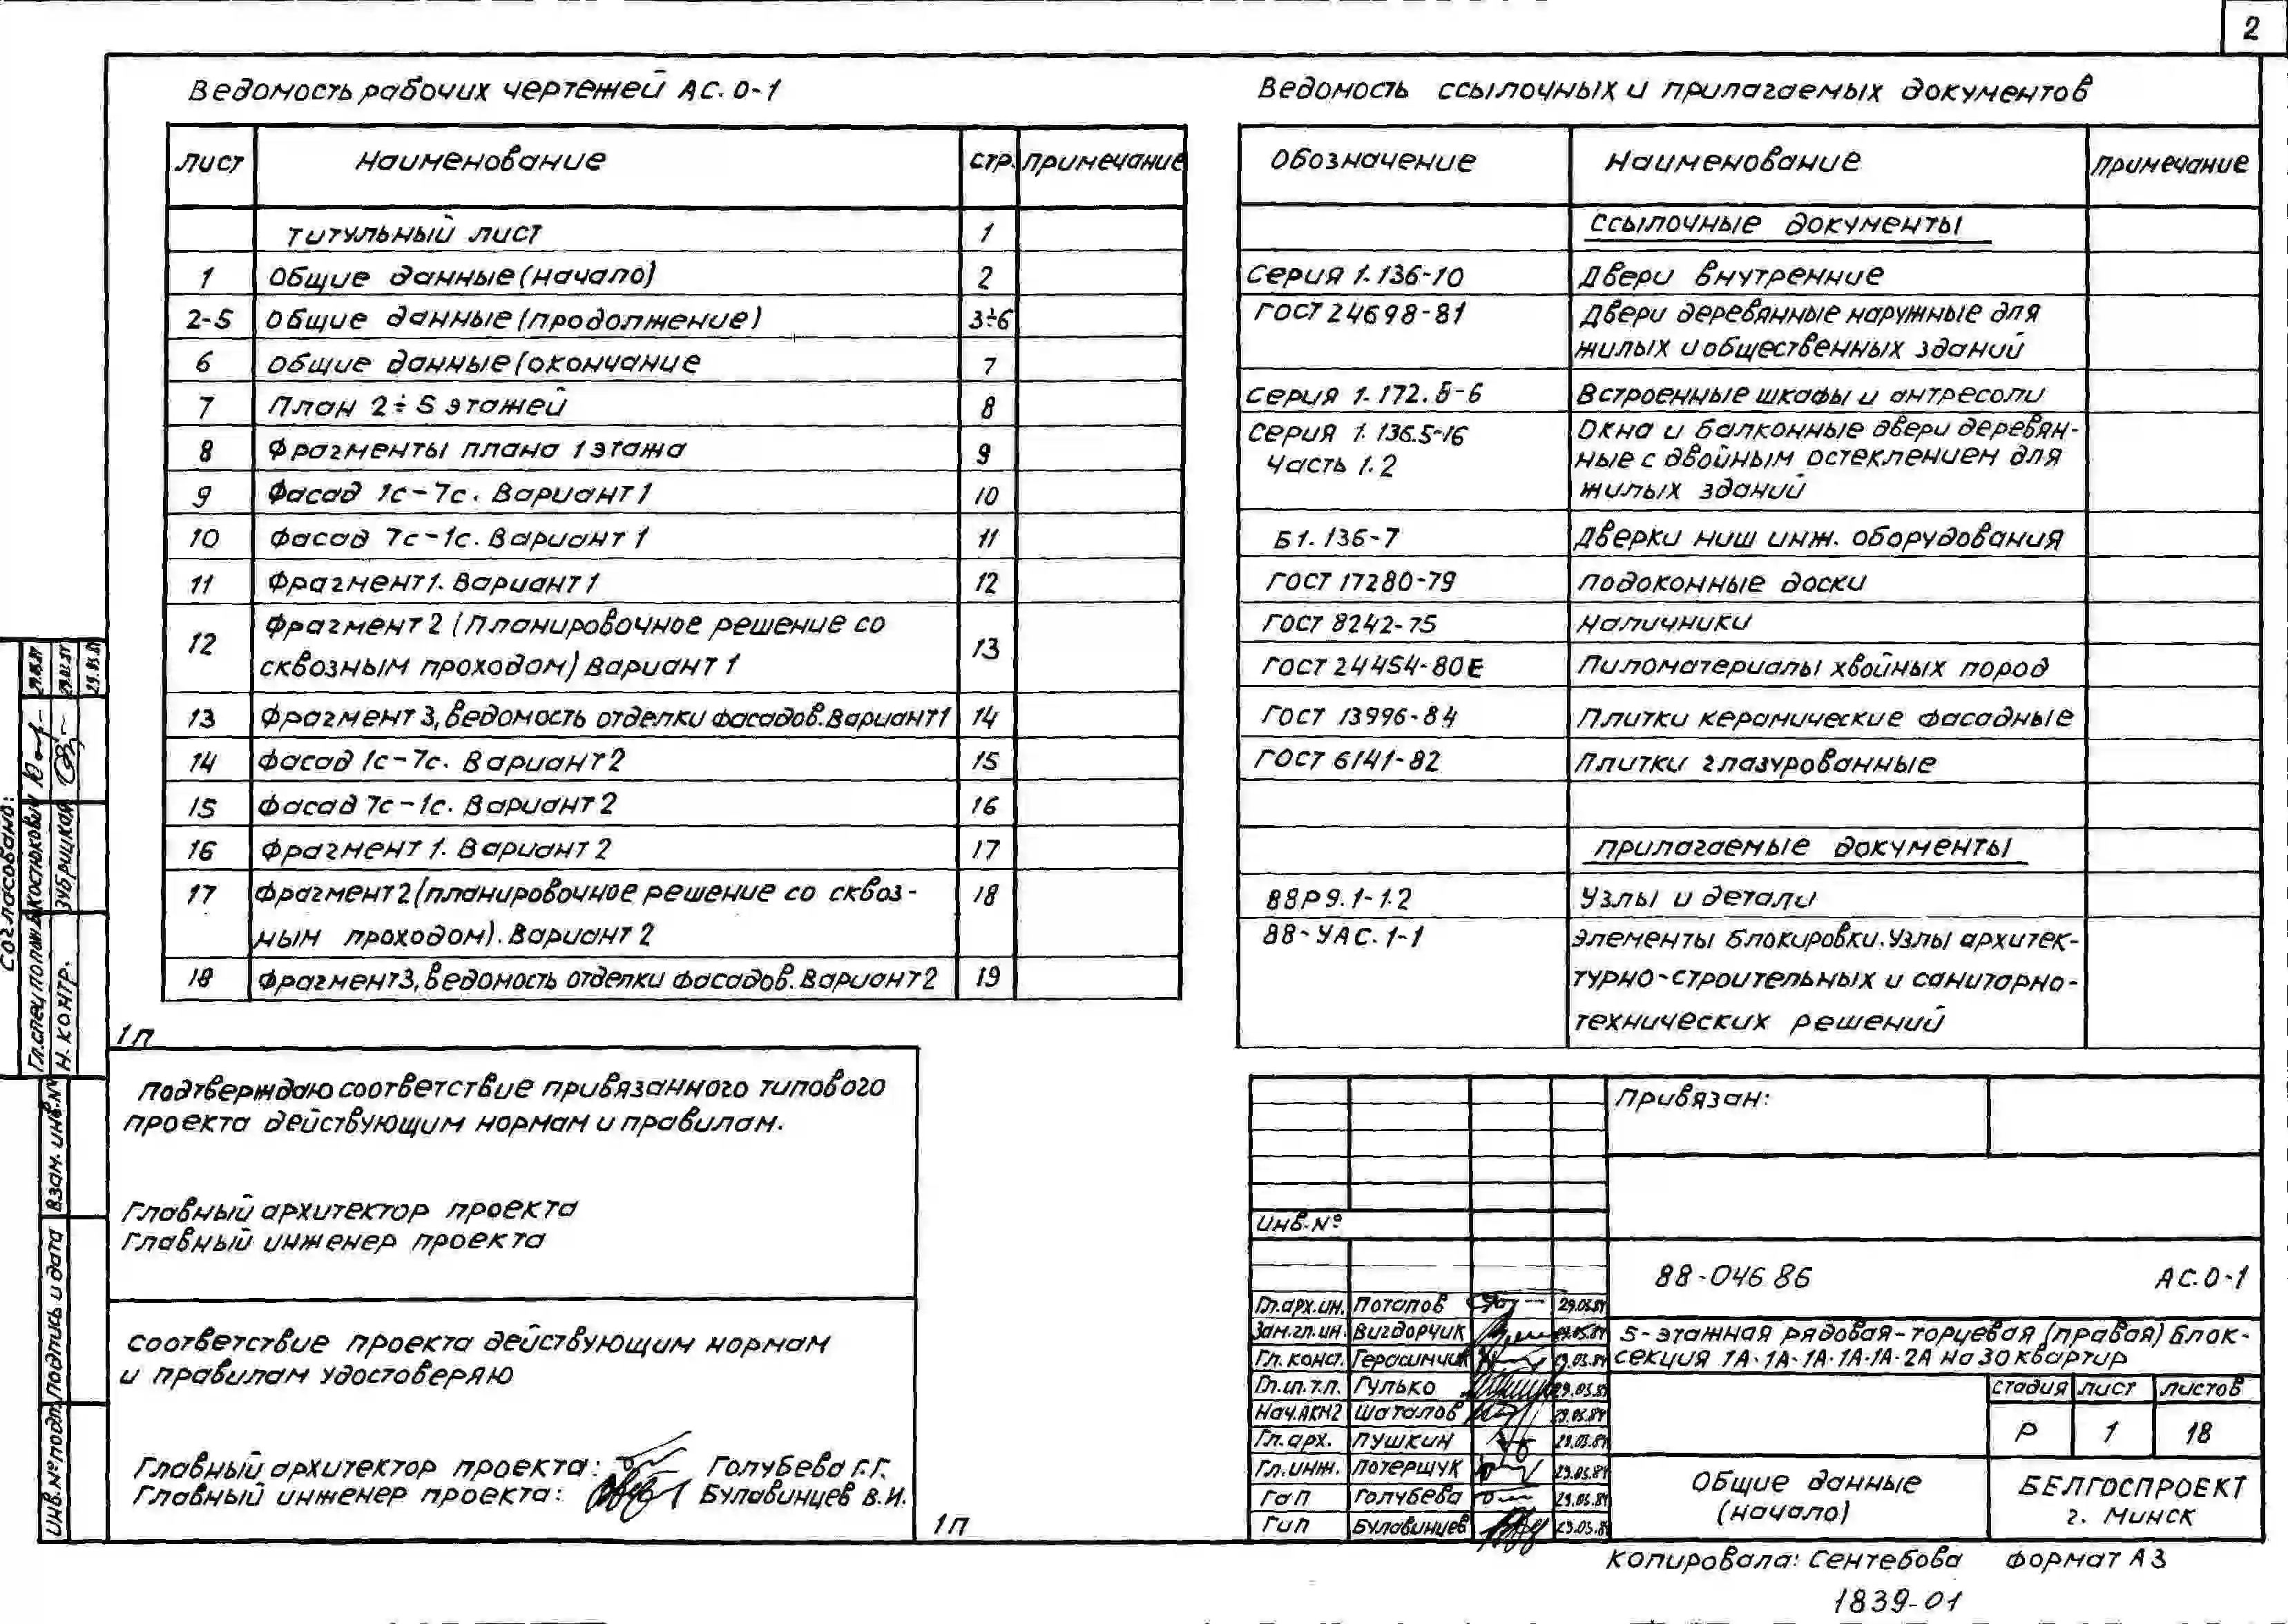 2
Ведомость рабочих чертежей АС.0-1
Лист Наименование Стр. Примечание
Титульный лист 1
1 Общие данные (начало) 2
2-5 Общие данные (продолжение) 3÷6
6 Общие данные (окончание 7
7 План 2÷5 этажей 8
8 Фрагменты плана 1 этажа 9
9 Фасад 1с-7с. Вариант 1 10
10 Фасад 7с-1с. Вариант 1 11
11 Фрагмент 1. Вариант 1 12
12 Фрагмент 2 (планировочное решение со 13
сквозным проходом) Вариант 1
13 Фрагмент 3, ведомость отделки фасадов. Вариант 1 14
14 Фасад 1с-7с. Вариант 2 15
15 Фасад 7с-1с. Вариант 2 16
16 Фрагмент 1. Вариант 2 17
17 Фрагмент 2 (планировочное решение со сквоз- 18
ным проходом). Вариант 2
18 Фрагмент 3, ведомость отделки фасадов. Вариант 2 19
Ведомость ссылочных и прилагаемых документов
Обозначение Наименование Примечание
Ссылочные документы
Серия 1.136-10 Двери внутренние
ГОСТ 24698-81 Двери деревянные наружные для
жилых и общественных зданий
Серия 1.172.5-6 Встроенные шкафы и антресоли
Серия 1.136.5-16 Окна и балконные двери деревян-
Часть 1.2 ные с двойным остеклением для
жилых зданий
Б1.136-7 Дверки ниш инж. оборудования
ГОСТ 17280-79 Подоконные доски
ГОСТ 8242-75 Наличники
ГОСТ 24454-80Е Пиломатериалы хвойных пород
ГОСТ 13996-84 Плитки керамические фасадные
ГОСТ 6141-82 Плитки глазурованные
Прилагаемые документы
88Р9.1-1.2 Узлы и детали
88-УАС.1-1 Элементы блокировки. Узлы архитек-
турно-строительных и санитарно-
технических решений
1п
Подтверждаю соответствие привязанного типового
проекта действующим нормам и правилам.
Главный архитектор проекта
Главный инженер проекта
Соответствие проекта действующим нормам
и правилам удостоверяю
Главный архитектор проекта: Голубева Г.Г.
Главный инженер проекта: Булавинцев В.И.
1п
Согласовано:
Гл.спец.полож. Костюкович
Н. контр. Зубрицкая
Взам. инв.№
Подпись и дата
Инв.№ подл.
Привязан:
Инв.№
88-046 86 АС.0-1
Гл.арх.ин. Потапов
Зам.гл.ин. Вигдорчик
Гл. конст. Герасимчик
Гл.сп.т.п. Гулько
Нач.АКМ2 Шаталов
Гл.арх. Пушкин
Гл.инж. Потершук
ГАП Голубева
ГИП Булавинцев
5-этажная рядовая-торцевая (правая) блок-
секция 1А-1А-1А-1А-1А-2А на 30 квартир
Стадия Лист Листов
Р 1 18
Общие данные
(начало)
БЕЛГОСПРОЕКТ
г. Минск
Копировала: Сентебова Формат А3
1839-01